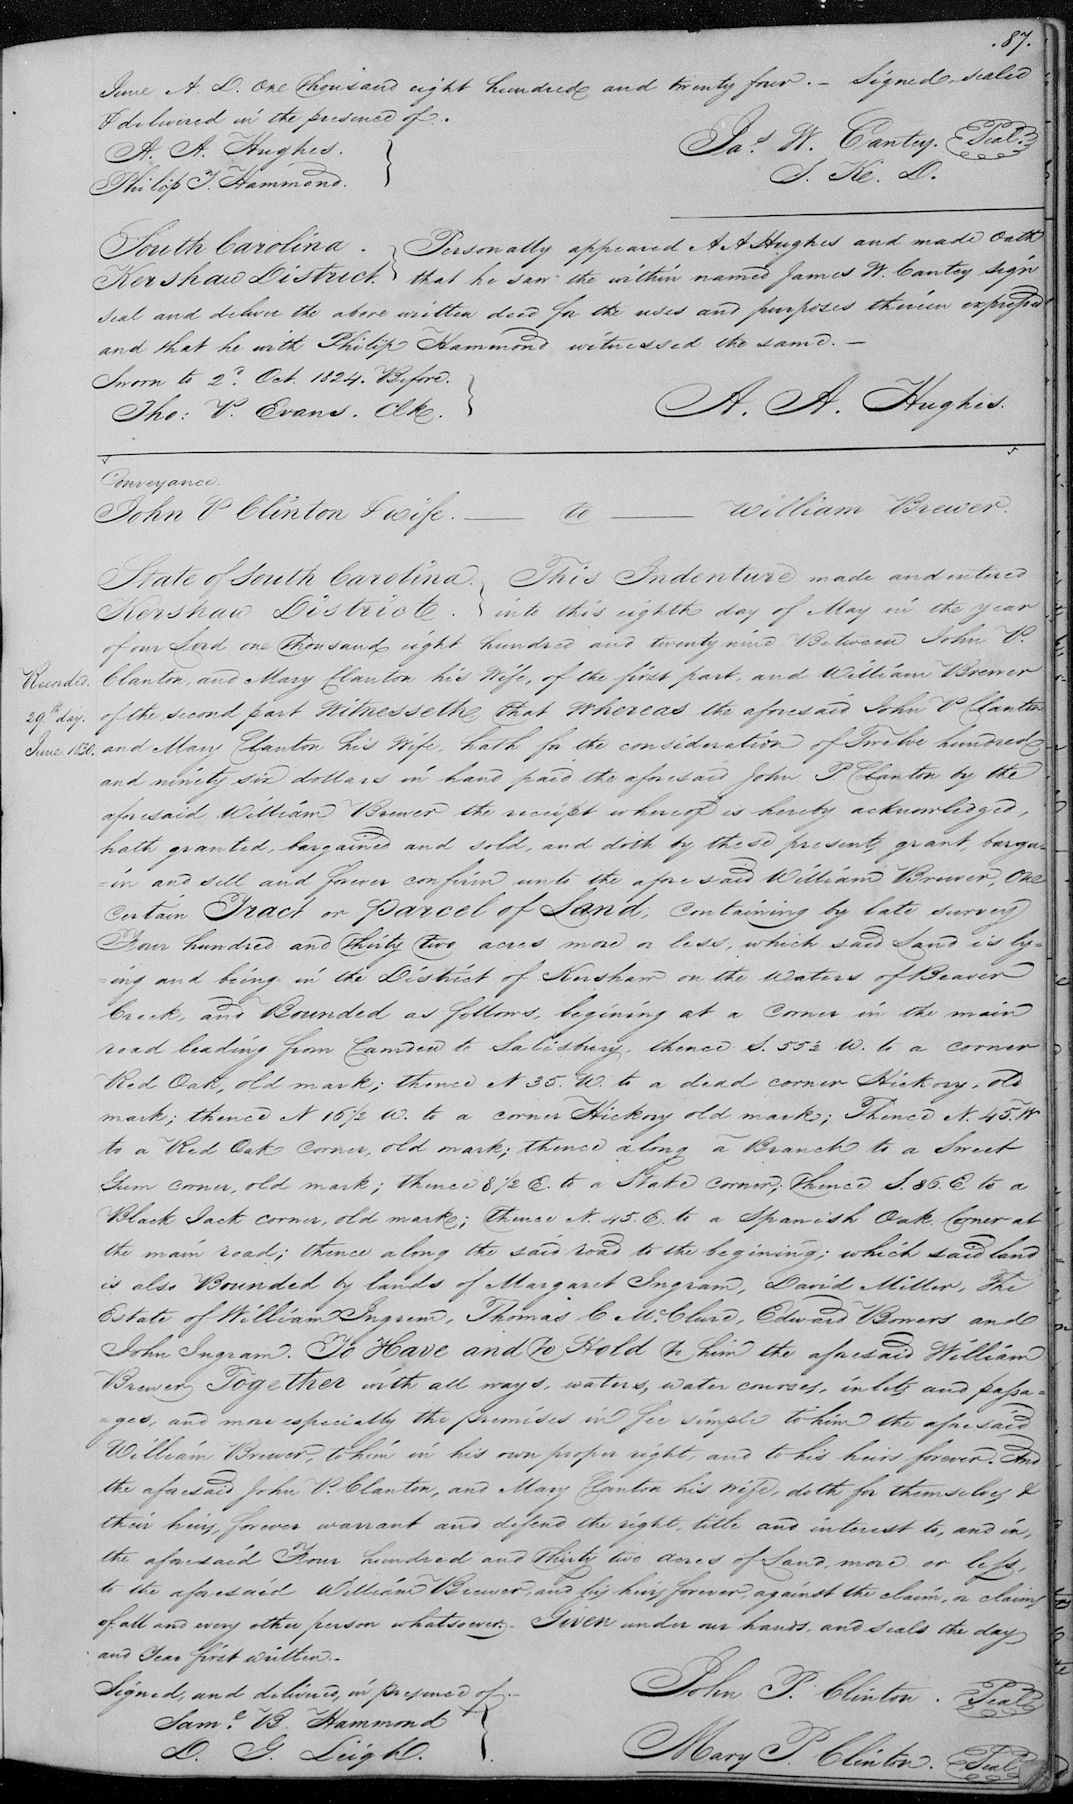 .87.
June A. D. One Thousand eight hundred and twenty four. – Signed, sealed
& delivered in the presence of.
A. A. Hughes.
Philip T. Hammond.
Jas. W. Cantey. Seal.
S. Ke. D.
South Carolina.
Kershaw District.
Personally appeared A A Hughes and made Oath
that he saw the within named James W. Cantey sign
seal and deliver the above written deed for the uses and purposes therein expressed
and that he with Philip Hammond witnessed the same. –
Sworn to 2d. Oct. 1824. Before.
Tho: P. Evans. Clk.
A. A. Hughes.
Conveyance.
John P Clinton & wife. — to — William Brewer.
State of South Carolina.
Kershaw District.
This Indenture made and entered
into this eighth day of May in the year
of our Lord one thousand eight hundred and twenty nine Between John P.
Recorded.
29th day.
June 1830.
Clanton, and Mary Clanton his Wife, of the first part, and William Brewer
of the second part Witnesseth, that Whereas the aforesaid John P Clanton
and Mary Clanton his Wife, hath for the consideration of Twelve hundred
and ninety six dollars in hand paid the aforesaid John P Clanton by the
aforesaid William Brewer the receipt whereof is hereby acknowledged,
hath granted, bargained and sold, and doth by these presents, grant, barga=
=in and sell and forever confirm unto the aforesaid William Brewer, One
Certain Tract or Parcel of Land, Containing by late survey
Four hundred and thirty two acres more or less, which said Land is ly=
=ing and being in the District of Kershaw on the Waters of Beaver
Creek, and Bounded as follows, begining at a Corner in the main
road leading from Camden to Salisbury, thence S. 55½ W. to a corner
Red Oak, old mark; thence N 35. W. to a dead corner Hickory, old
mark; thence N 16½ W. to a corner Hickory old mark; Thence N. 45. W
to a Red Oak Corner, old mark; thence along a Branch to a Sweet
Gum corner, old mark; thence 8½ E. to a Stake Corner; thence S. 86. E to a
Black Jack corner, old mark; thence N. 45. E. to a Spanish Oak Corner at
the main road; thence along the said road to the begining; which said land
is also Bounded by lands of Margaret Ingram, David Miller, The
Estate of William Ingrem, Thomas C McClure, Edward Bowers and
John Ingram. To Have and to Hold to him the aforesaid William
Brewer Together with all ways, waters, water courses, inlets and passa=
=ges, and more especially the premises in fee simple to him the aforesaid
William Brewer, to him in his own proper right, and to his heirs forever. And
the aforesaid John P. Clanton, and Mary Clanton his Wife, doth for themselves &
their heirs, forever warrant and defend the right, title and interest to, and in,
the aforesaid Four hundred and thirty two acres of Land, more or less,
to the aforesaid William Brewer, and his heirs forever, against the claim, or claims
of all and every other person whatsoever. Given under our hands, and seals the day
and Year first written. –
Signed, and delivered, in presence of. –
Saml. B. Hammond
D. G. Leigh.
John P. Clinton. Seal
Mary P. Clinton. Seal